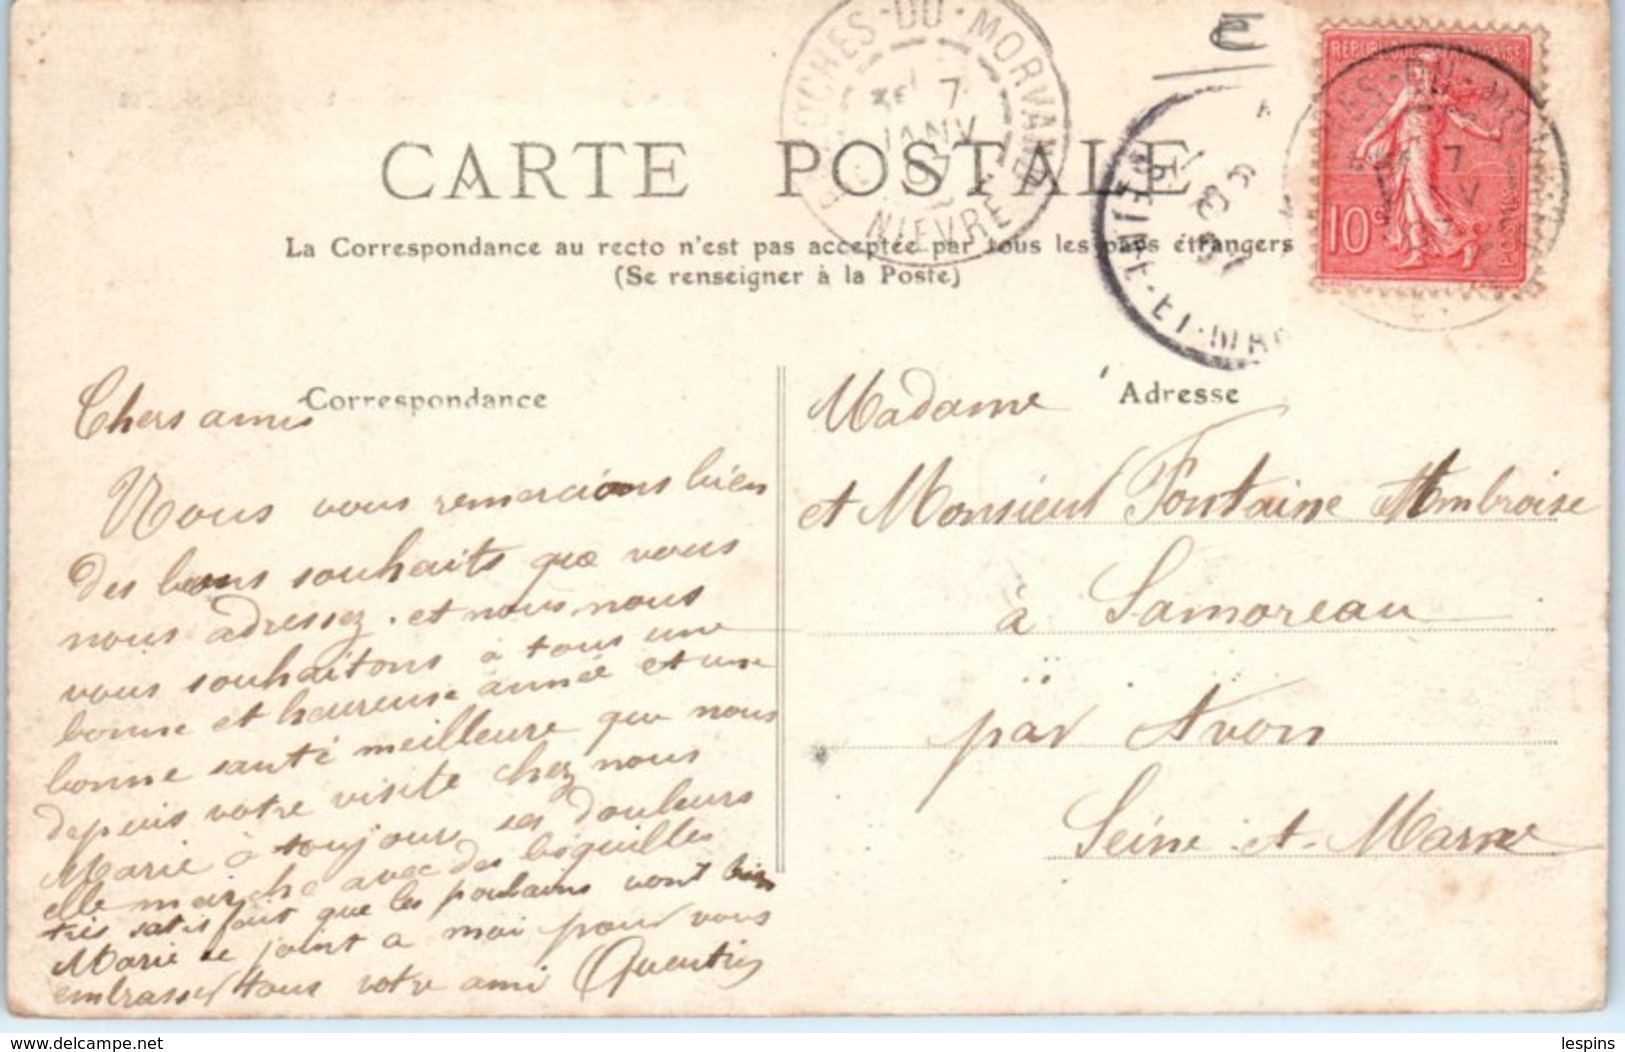 CARTE POSTALE
La Correspondance au recto n'est pas acceptée par tous les pays étrangers
(Se renseigner à la Poste)
DU · MORVAN
7
JANV
07
NIÈVRE
REPUBLIQUE FRANÇAISE
10
Correspondance
Chers amis
Nous vous remercions bien
des bons souhaits que vous
nous adressez. et nous nous
vous souhaitons à tous une
bonne et heureuse année et une
bonne santé meilleure que nous
depuis votre visite chez nous
Marie à toujours ses douleurs
elle marche avec des béquilles
très satisfait que les poulains vont bien
Marie se joint a moi pour vous
embrasser tous votre ami Quentin
Adresse
Madame
et Monsieur Fontaine Ambroise
à Samoreau
par Avon
Seine-et-Marne
lespins
https://www.delcampe.net